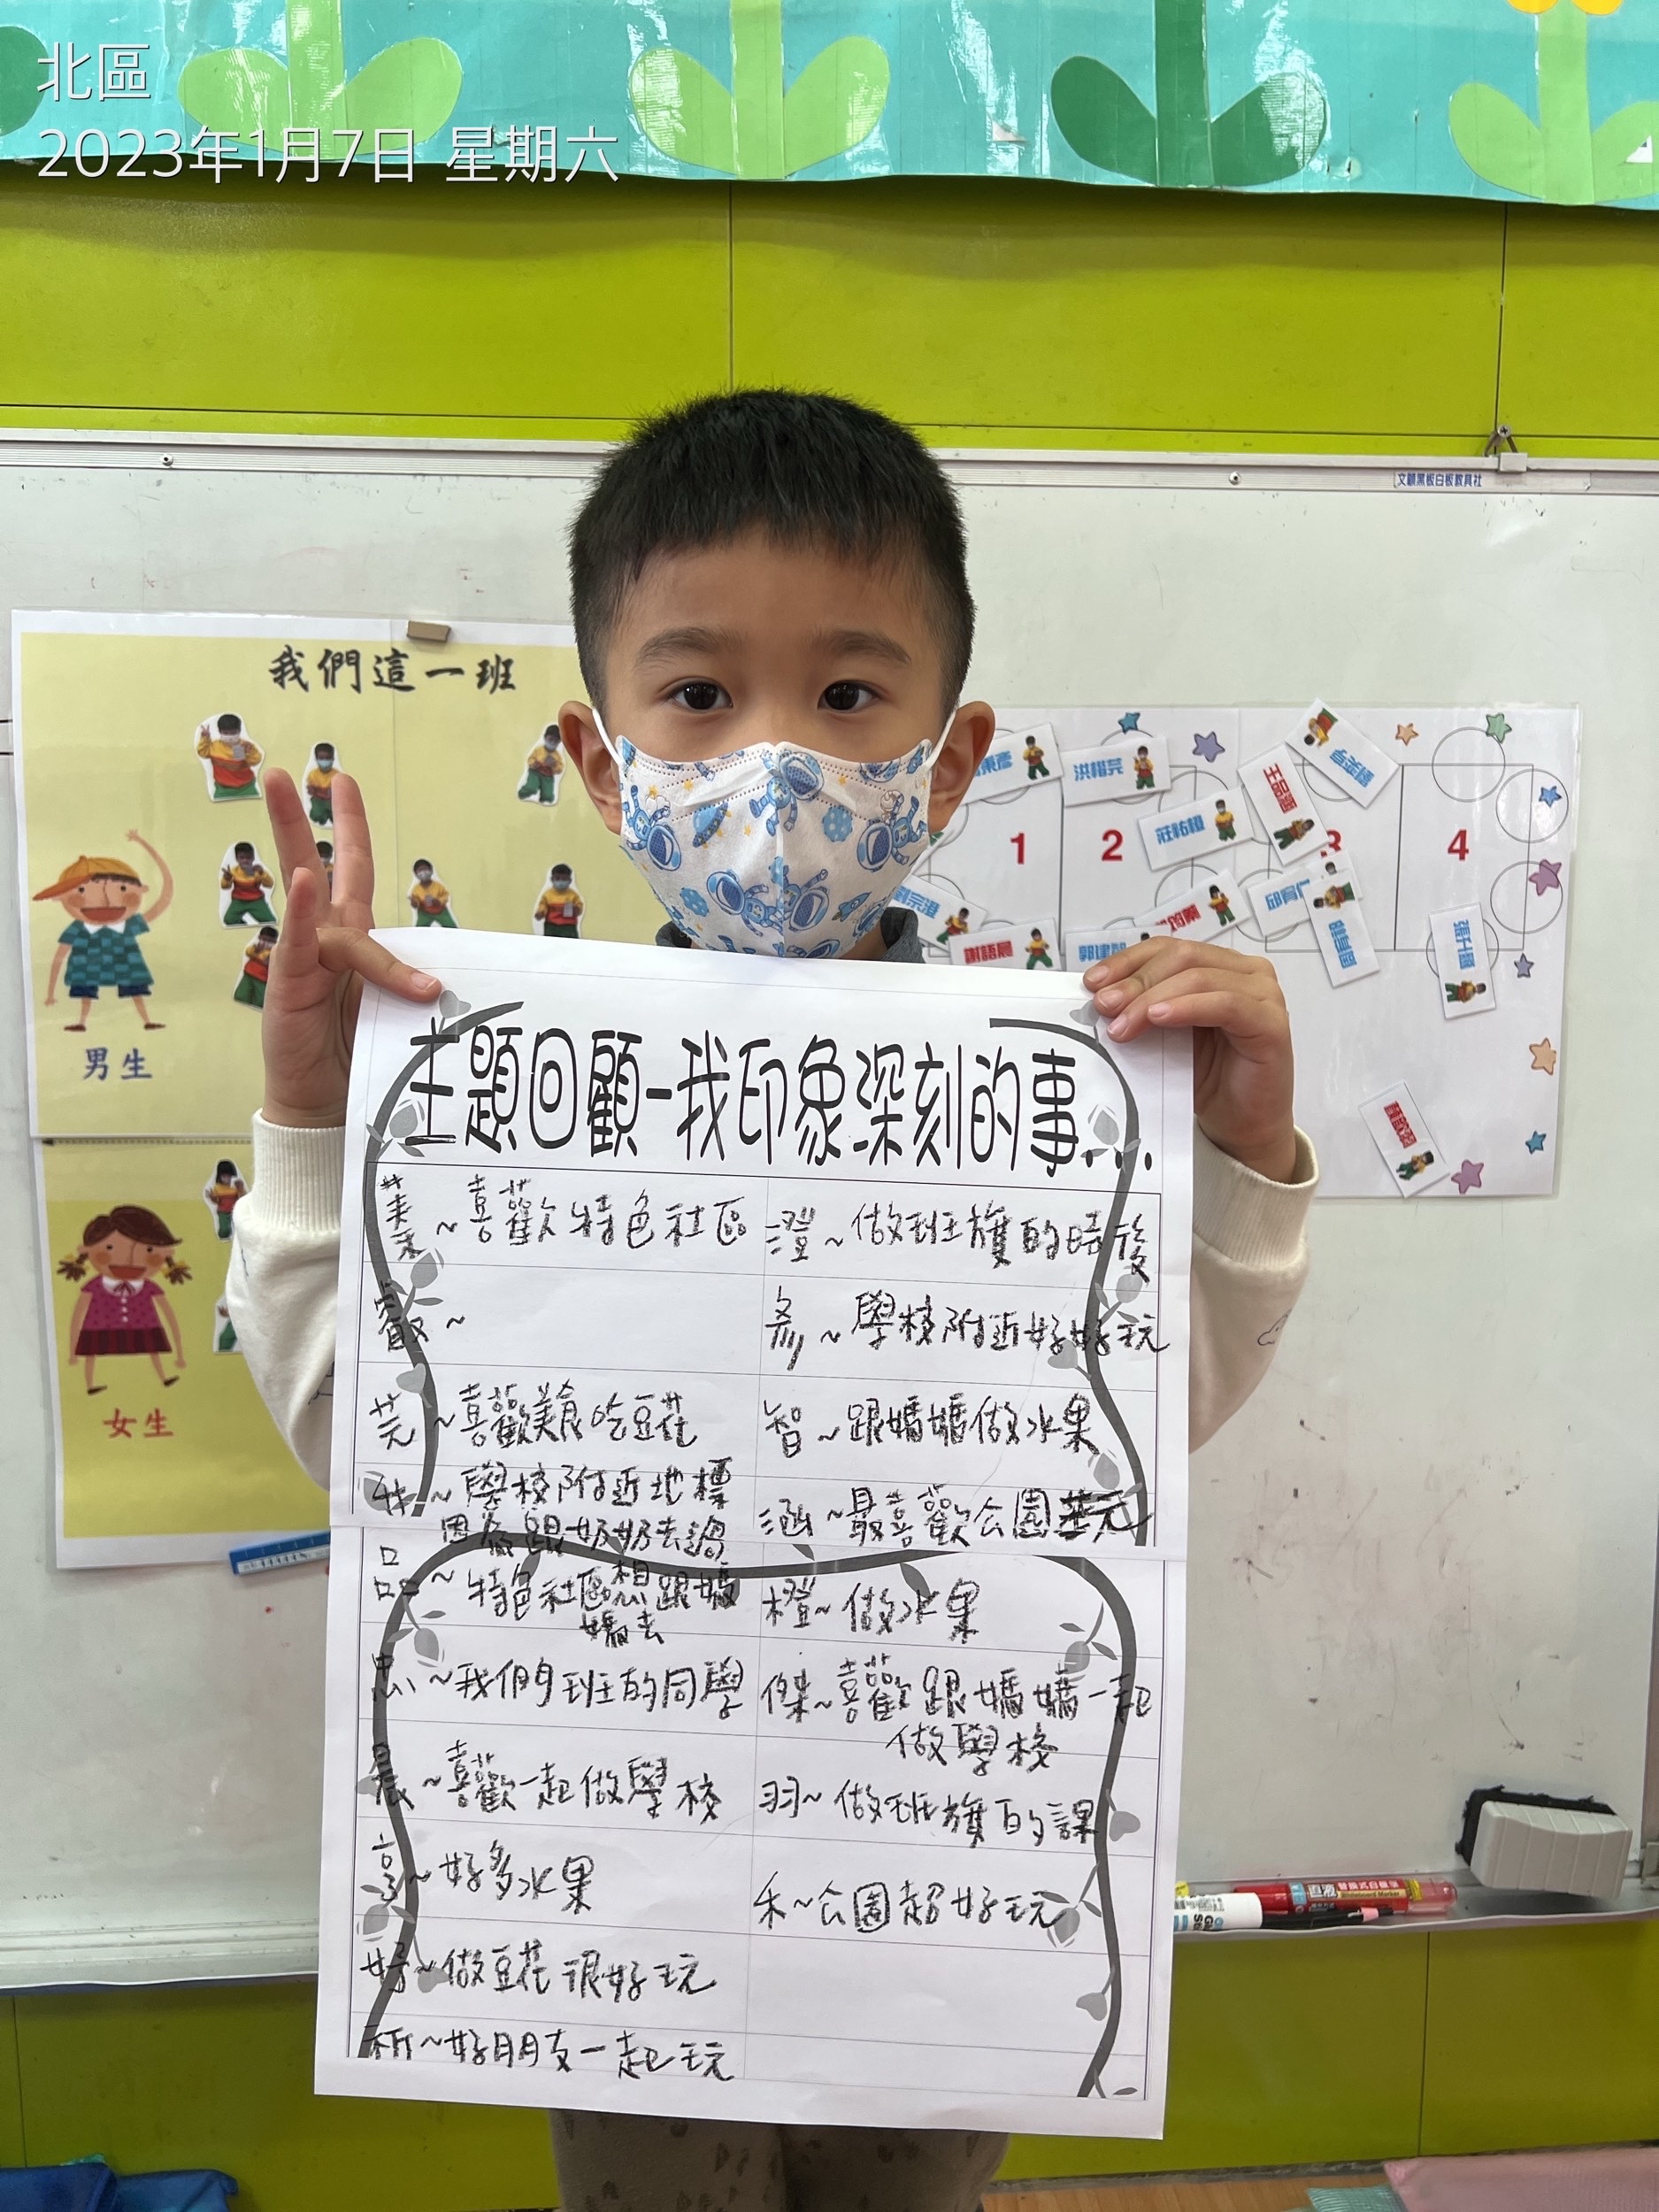 北區
2023年1月7日 星期六
文顧黑板白板教具社
我們這一班
男生
女生
1
2
3
4
洪楷芫
莊祐橙
劉宗澄
謝語晨
主題回顧-我印象深刻的事...
~喜歡特色社區
叡~
芫~喜歡美食吃豆花
~學校附近地標
因為跟奶奶去過
品~特色社區想跟媽
媽去
忠~我們班的同學
晨~喜歡一起做學校
享~好多水果
妤~做豆花很好玩
祈~好朋友一起玩
澄~做班旗的時後
~學校附近好好玩
智~跟媽媽做水果
涵~最喜歡公園玩
橙~做水果
傑~喜歡跟媽媽一起
做學校
羽~做班旗的課
禾~公園超好玩